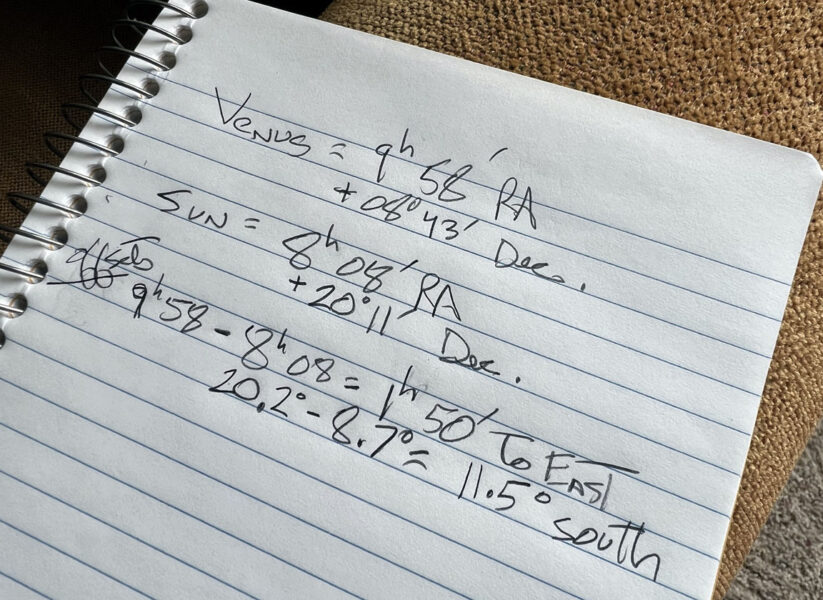 Venus = 9h 58' RA
+08°43' Dec.
Sun = 8h 08' RA
+20°11 Dec.
offsets
9h58 - 8h08 = 1h 50' To East
20.2° - 8.7° = 11.5° South